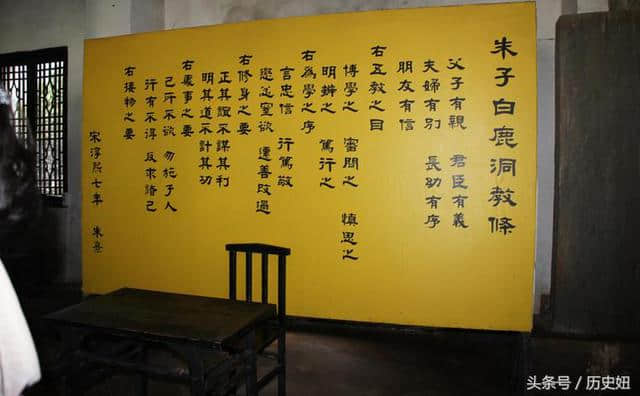 朱子白鹿洞教條
父子有親 君臣有義
夫婦有別 長幼有序
朋友有信
右五教之目
博學之 審問之 慎思之
明辨之 篤行之
右為學之序
言忠信 行篤敬
懲忿窒欲 遷善改過
右修身之要
正其誼不謀其利
明其道不計其功
右處事之要
己所不欲 勿施于人
行有不得 反求諸己
右接物之要
宋淳熙七年 朱熹
头条号 / 历史妞